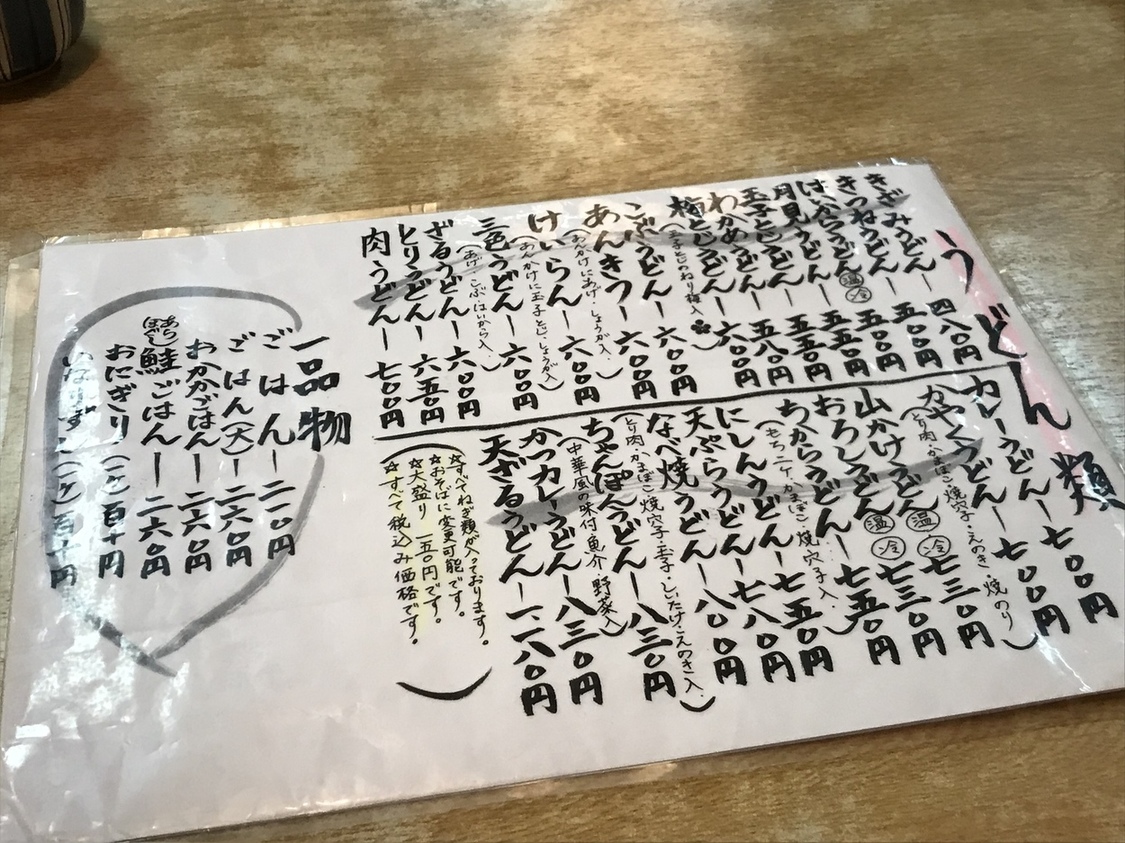 うどん類
きざみうどん― 四八〇円
きつねうどん― 五〇〇円
はいからうどん― 温 冷 五五〇円
月見うどん― 五五〇円
玉子とじうどん― 五五〇円
わかめうどん― 五八〇円
梅とじうどん― 六〇〇円
(玉子とじのねり梅入)
こぶうどん― 六〇〇円
あんきつ― 六〇〇円
(あんかけにあげ・しょうが入)
けいらん― 六〇〇円
(あんかけに玉子とじ しょうが入)
三色うどん― 六〇〇円
(あげ・こぶ・はいから入)
ざるうどん― 六〇〇円
とりうどん― 六五〇円
肉うどん― 七〇〇円
カレーうどん― 七〇〇円
かやくうどん― 七〇〇円
(とり肉・かまぼこ・焼穴子・えのき・焼のり)
山かけうどん 温 冷 七三〇円
おろしうどん 温 冷 七三〇円
ちからうどん― 七五〇円
(もち二ケ・かまぼこ・焼穴子入)
にしんうどん― 七五〇円
天ぷらうどん― 七八〇円
なべ焼うどん― 八〇〇円
(とり肉・かまぼこ・焼穴子・玉子・しいたけ・えのき入)
ちゃんぽんうどん― 八三〇円
(中華風の味付 魚介・野菜入)
かつカレーうどん― 八三〇円
天ざるうどん― 一、一八〇円
☆すべてねぎ類が入っております。
☆おそばに変更可能です。
☆大盛り 一五〇円です。
☆すべて税込み価格です。
一品物
ごはん― 二一〇円
ごはん(大)― 二六〇円
おかかごはん― 二六〇円
あらほぐし鮭ごはん― 二六〇円
おにぎり(一ケ)百十円
いなりずし(一ケ)百十円